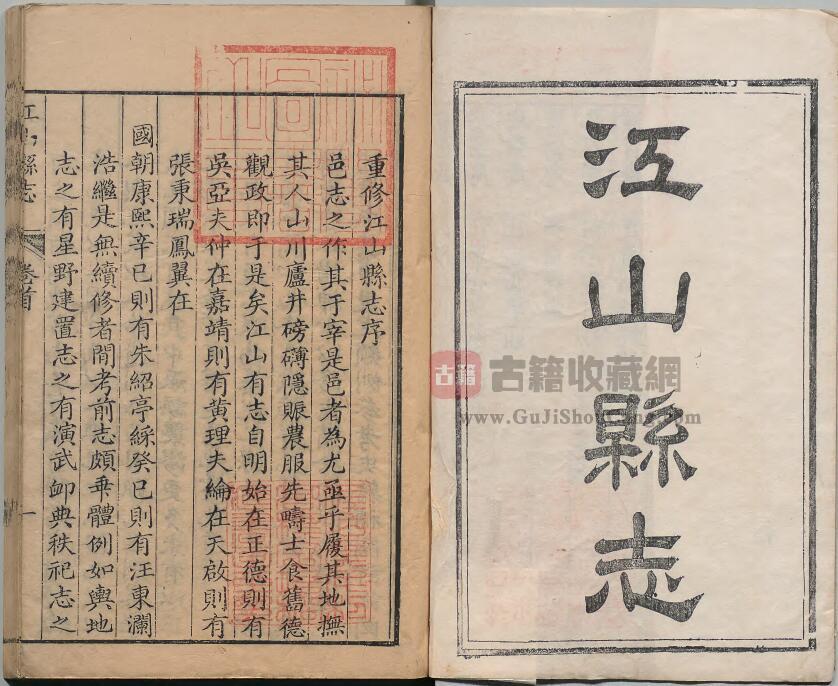 江山縣志
重修江山縣志序
邑志之作其于宰是邑者為尤亟乎履其地撫
其人山川廬井磅礴隱賑農服先疇士食舊德
觀政即于是矣江山有志自明始在正德則有
吳亞夫仲在嘉靖則有黃理夫綸在天啟則有
張秉瑞鳳翼在
國朝康熙辛巳則有朱紹亭綵癸巳則有汪東瀾
浩繼是無續修者間考前志頗乖體例如輿地
志之有星野建置志之有演武卹典秩祀志之
江山縣志
卷首
一
古籍
古籍收藏網